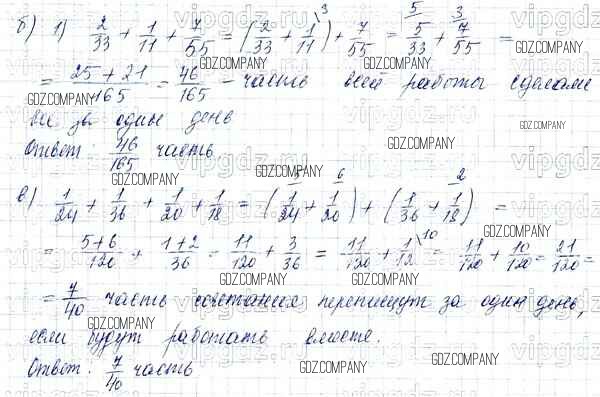 б) 1) 2/33 + 1/11 + 7/55 = (2/33 + 1/11\3) + 7/55 = 5/5/33 + 3/7/55 =
= 25 + 21/165 = 46/165 - часть всей работы сделали
все за один день
Ответ: 46/165 часть
в) 1/24 + 1/36 + 1/20 + 1/18 = (5/1/24 + 6/1/20) + (1/36 + 2/1/18) =
= 5+6/120 + 1+2/36 = 11/120 + 3/36 = 11/120 + 1/12\10 = 11/120 + 10/120 = 21/120 =
= 7/40 часть сочетания перепишут за один день,
если будут работать вместе.
Ответ: 7/40 часть
GDZ.COMPANY
GDZ.COMPANY
GDZ.COMPANY
GDZ.COMPANY
GDZ.COMPANY
GDZ.COMPANY
GDZ.COMPANY
GDZ.COMPANY
GDZ.COMPANY
GDZ.COMPANY
GDZ.COMPANY
GDZ.COMPANY
GDZ.COMPANY
GDZ.COMPANY
vipgdz.ru